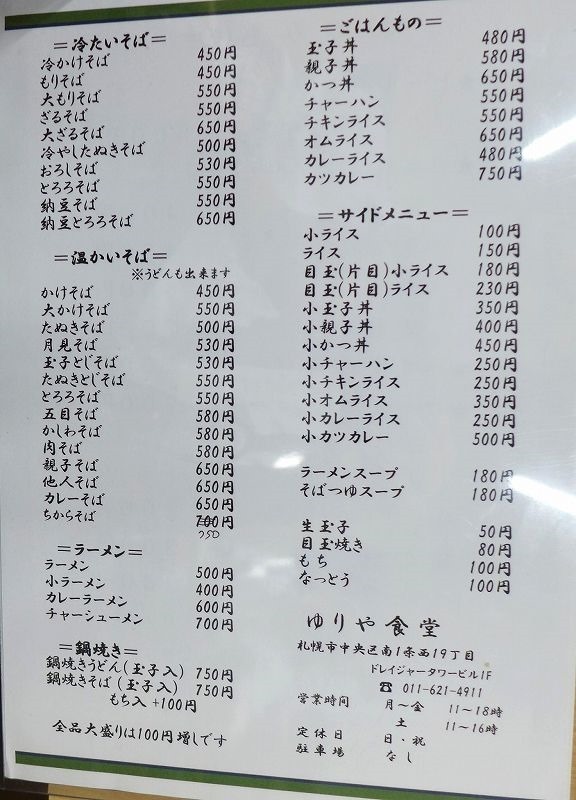 ＝冷たいそば＝
冷かけそば 450円
もりそば 450円
大もりそば 550円
ざるそば 550円
大ざるそば 650円
冷やしたぬきそば 500円
おろしそば 530円
とろろそば 550円
納豆そば 550円
納豆とろろそば 650円
＝温かいそば＝
※うどんも出来ます
かけそば 450円
大かけそば 550円
たぬきそば 500円
月見そば 530円
玉子とじそば 530円
たぬきとじそば 550円
とろろそば 550円
五目そば 580円
かしわそば 580円
肉そば 580円
親子そば 650円
他人そば 650円
カレーそば 650円
ちからそば 700円
750
＝ラーメン＝
ラーメン 500円
小ラーメン 400円
カレーラーメン 600円
チャーシューメン 700円
＝鍋焼き＝
鍋焼きうどん(玉子入) 750円
鍋焼きそば(玉子入) 750円
もち入 +100円
全品大盛りは100円増しです
＝ごはんもの＝
玉子丼 480円
親子丼 580円
かつ丼 650円
チャーハン 550円
チキンライス 550円
オムライス 650円
カレーライス 480円
カツカレー 750円
＝サイドメニュー＝
小ライス 100円
ライス 150円
目玉(片目)小ライス 180円
目玉(片目)ライス 230円
小玉子丼 350円
小親子丼 400円
小かつ丼 450円
小チャーハン 250円
小チキンライス 250円
小オムライス 350円
小カレーライス 250円
小カツカレー 500円
ラーメンスープ 180円
そばつゆスープ 180円
生玉子 50円
目玉焼き 80円
もち 100円
なっとう 100円
ゆりや食堂
札幌市中央区南1条西19丁目
ドレイジャータワービル1F
☎ 011-621-4911
営業時間 月～金 11～18時
土 11～16時
定休日 日・祝
駐車場 なし